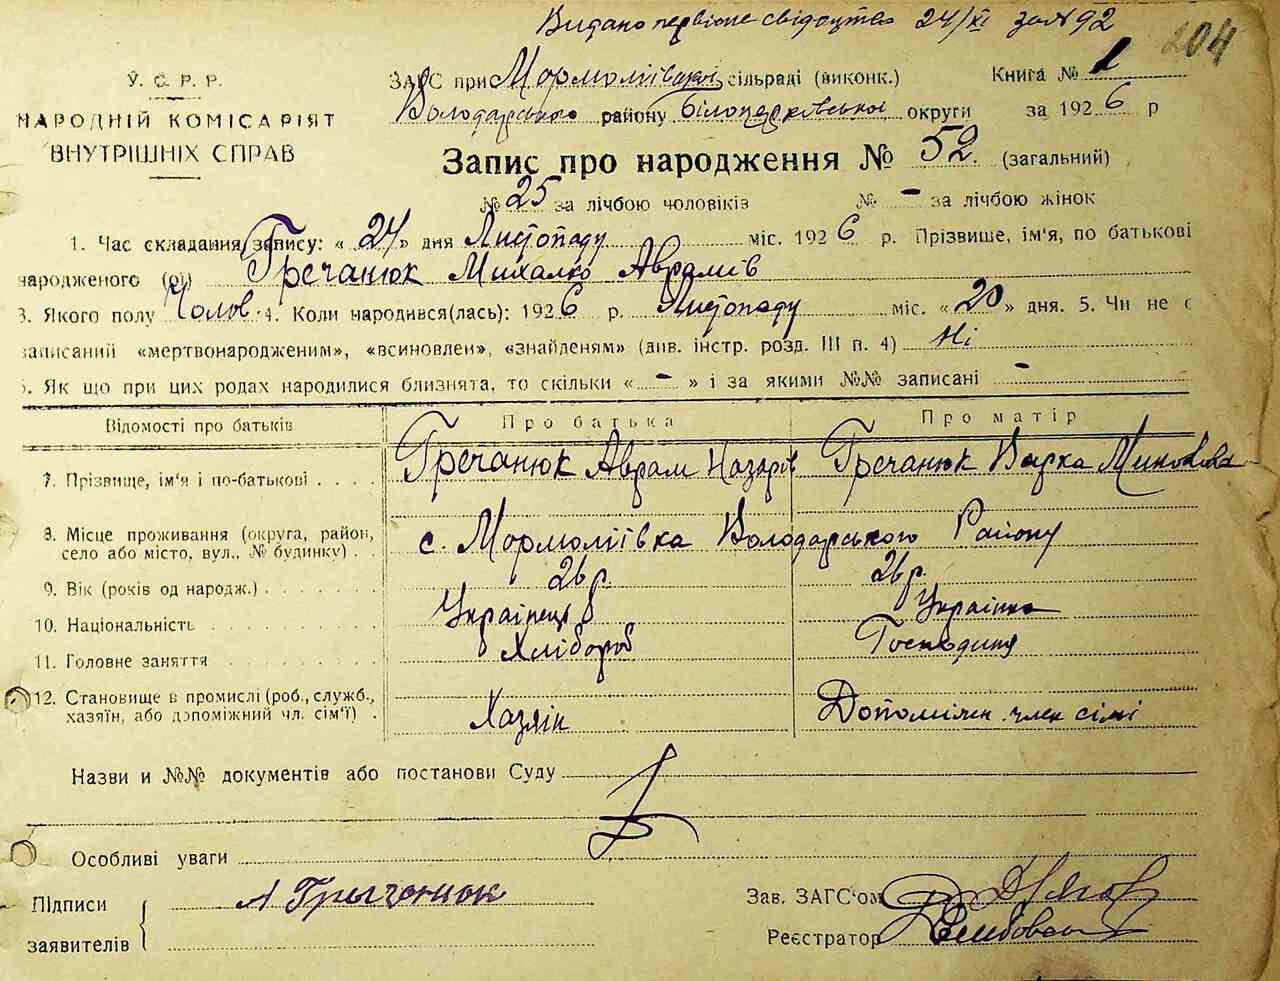 Видано первісне свідоцтво 24/XI за №92
204
У.С.Р.Р.
НАРОДНІЙ КОМІСАРІЯТ
ВНУТРІШНІХ СПРАВ
ЗАГС при Мормоліївській сільраді (виконк.) Книга № 1
Володарського району Білоцерківської округи за 1926 р
Запис про народження № 52. (загальний)
№ 25 за лічбою чоловіків № – за лічбою жінок
1. Час складання запису: « 24 » дня Листопаду міс. 1926 р. Прізвище, ім'я, по батькові
народженого (ої) Гречанюк Михалко Аврамів
3. Якого полу Чолов. 4. Коли народився(лась): 1926 р. Листопаду міс. «20» дня. 5. Чи не є
записаний «мертвонародженим», «всиновлен», «знайденям» (див. інстр. розд. III п. 4) Ні
6. Як що при цих родах народилися близнята, то скільки « – » і за якими №№ записані –
Відомості про батьків Про батька Про матір
7. Прізвище, ім'я і по-батькові Гречанюк Аврам Назарів Гречанюк Варка
8. Місце проживання (округа, район,
село або місто, вул., № будинку) с. Мормоліївка Володарського Району
9. Вік (років од народж.) 26 р. 26 р.
10. Національність Українець Українка
11. Головне заняття Хлібороб Господиня
12. Становище в промислі (роб., служб.,
хазяїн, або допоміжний чл. сім'ї) Хазяїн Допоміжн. член сімї
Назви и №№ документів або постанови Суду
Особливі уваги
Підписи
заявителів
А Гречанюк
Зав. ЗАГС'ом
Реєстратор